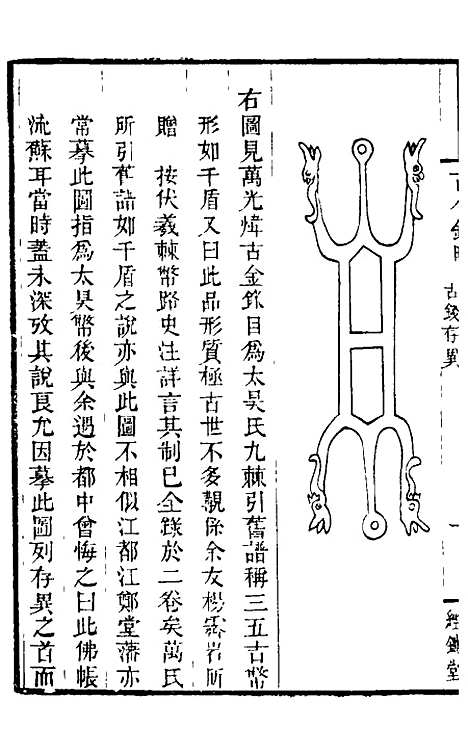 古錢存異
一
經鉏堂
右圖見萬光煒古金錄目爲太昊氏九棘引舊譜稱三五古幣
形如干盾又曰此品形質極古世不多觀係余友楊霱岩所
贈　按伏羲棘幣路史注詳言其制已全錄於二卷矣萬氏
所引舊譜如干盾之說亦與此圖不相似江都江鄭堂藩亦
常摹此圖指爲太昊幣後與余遇於都中曾悔之曰此佛帳
流蘇耳當時蓋未深攷其說良允因摹此圖列存異之首而